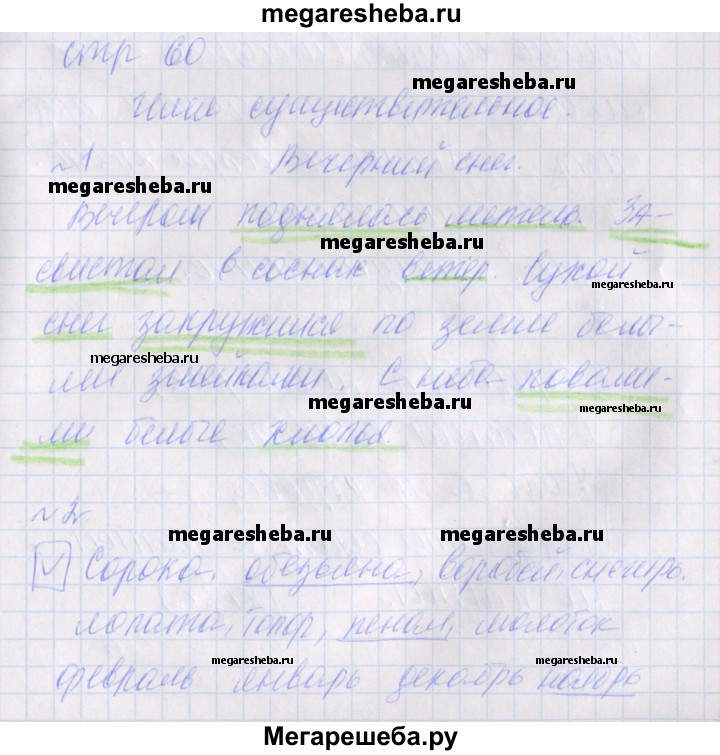 megaresheba.ru
стр 60
megaresheba.ru
Имя существительное.
№1 Вечерний снег.
megaresheba.ru
Вечером поднялась метель. За-
megaresheba.ru
свистал в соснах ветер. Сухой
megaresheba.ru
снег закружился по земле белы-
megaresheba.ru
ми змейками. С неба повали-
megaresheba.ru
megaresheba.ru
ли белые хлопья.
№2
megaresheba.ru
megaresheba.ru
Сорока, обезьяна, воробей, снегирь.
лопата, топор, пенал, молоток
megaresheba.ru
megaresheba.ru
февраль январь декабрь ноябрь
Мегарешеба.ру